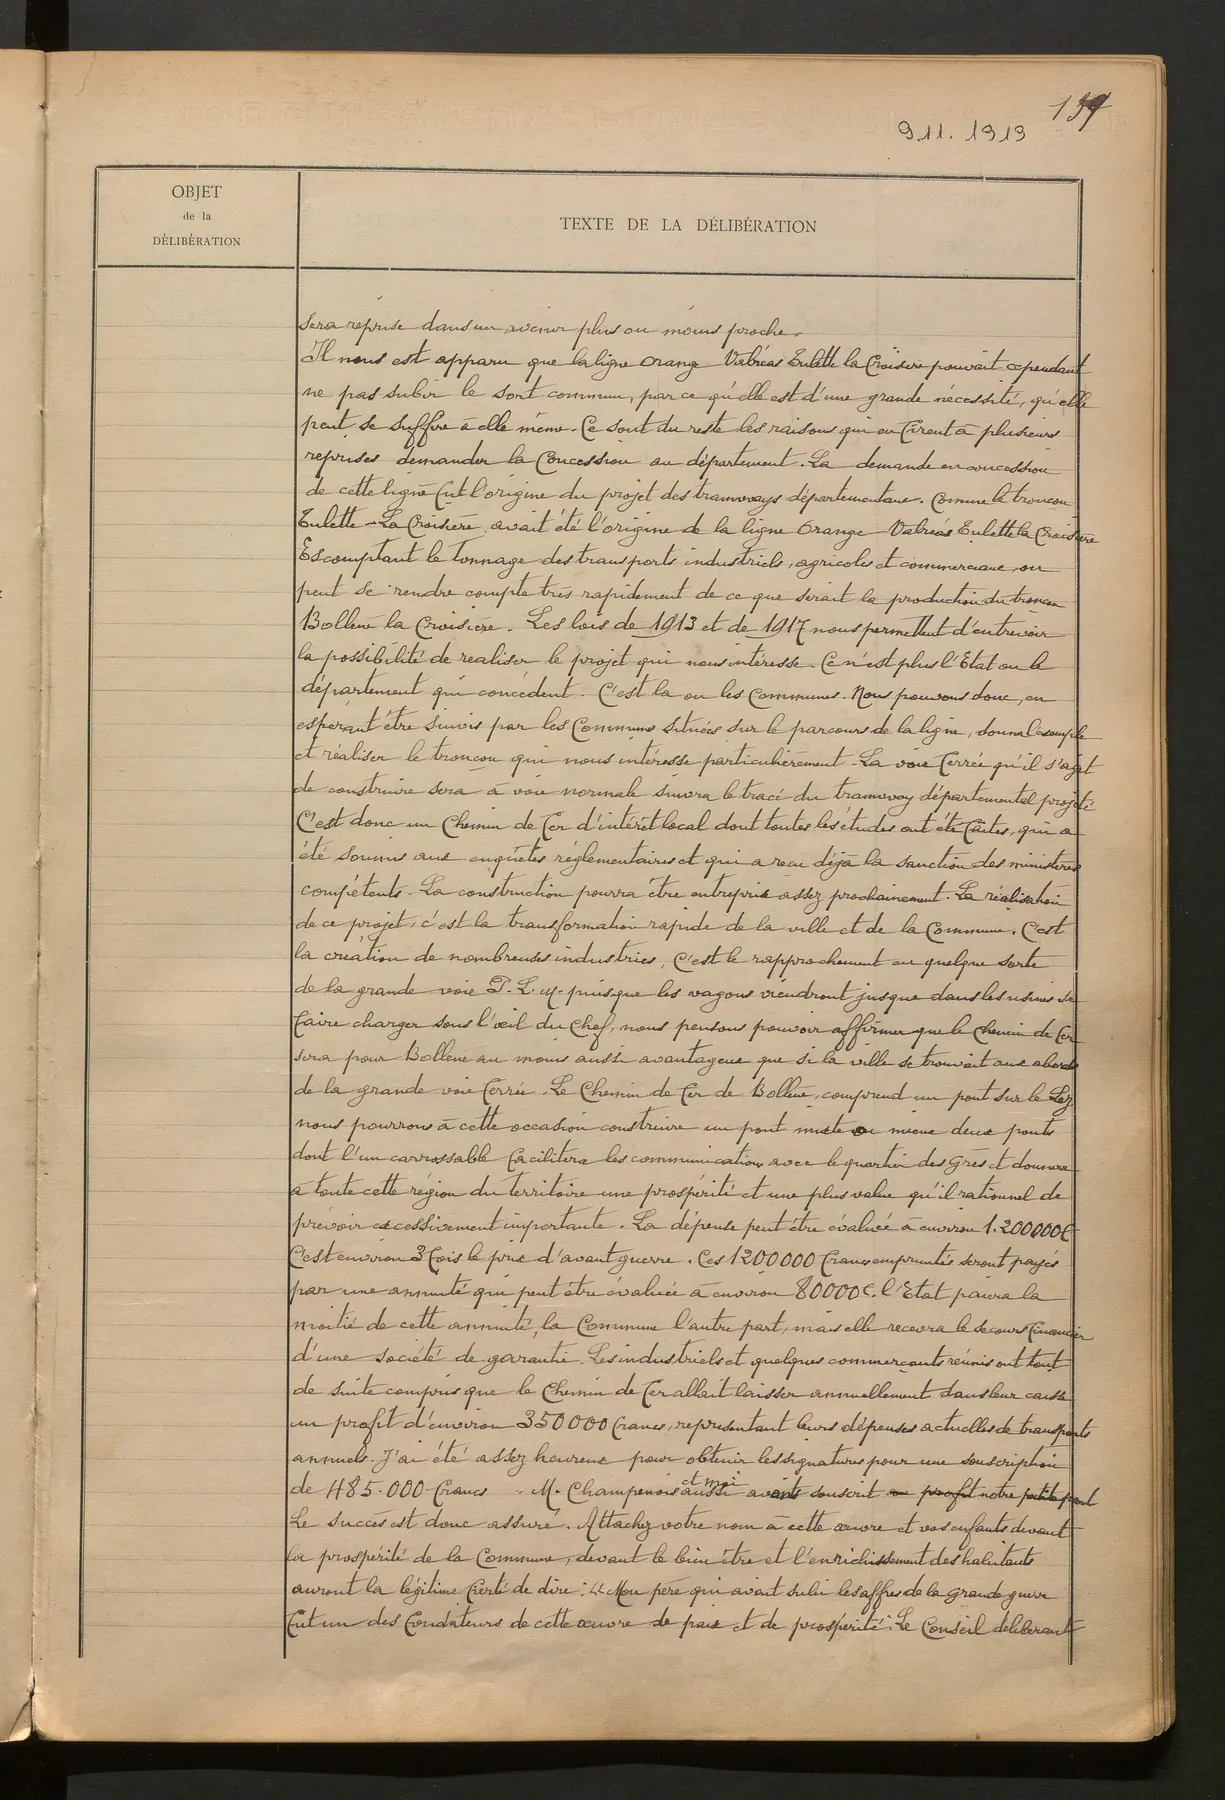 137
9.11.1919
OBJET
de la
DÉLIBÉRATION
TEXTE DE LA DÉLIBÉRATION
sera reprise dans un avenir plus ou moins proche.
Il nous est apparu que la ligne Orange Valréas Tulette la Croisière pouvait cependant
ne pas subir le sort commun, par ce qu'elle est d'une grande nécessité, qu'elle
peut se suffire à elle même. Ce sont du reste les raisons qui en firent à plusieurs
reprises demander la Concession au département. La demande en concession
de cette ligne fut l'origine du projet des tramways départementaux. Comme le troncon
Tulette - La Croisière avait été l'origine de la ligne Orange Valréas Tulette la Croisière
Escomptant le tonnage des transports industriels, agricoles et commerciaux, on
peut se rendre compte très rapidement de ce que serait la production du troncon
Bollène la Croisière. Les lois de 1913 et de 1917 nous permettent d'entrevoir
la possibilité de realiser le projet qui nous intéresse. Ce n'est plus l'Etat ou le
département qui concèdent. C'est la ou les Communes. Nous pouvons donc, en
espérant être suivis par les Communes situées sur le parcours de la ligne, donner l'exemple
et réaliser le troncon qui nous intéresse particulièrement. La voie ferrée qu'il s'agit
de construire sera à voie normale suivra le tracé du tramway départemental projeté
C'est donc un Chemin de fer d'intérêt local dont toutes les études ont été faites, qui a
été soumis aux enquêtes réglementaires et qui a recu déjà la sanction des ministères
compétents. La construction pourra être entreprise assez prochainement. La réalisation
de ce projet, c'est la transformation rapide de la ville et de la Commune. C'est
la création de nombreuses industries, C'est le rapprochement en quelque sorte
de la grande voie P.L.M. puisque les wagons viendront jusque dans les usines se
faire charger sous l'œil du chef, nous pensons pouvoir affirmer que le Chemin de fer
sera pour Bollène au moins aussi avantageux que si la ville se trouvait aux abords
de la grande voie ferrée. Le Chemin de fer de Bollène, comprend un pont sur le Lez
nous pourrons à cette occasion construire un pont mixte ou mieux deux ponts
dont l'un carrossable facilitera les communications avec le quartier des Grès et donnera
a toute cette région du territoire une prospérité et une plus value qu'il rationnel de
prévoir excessivement importante. La dépense peut être évaluée à environ 1.200000f
C'est environ 3 fois le prix d'avant guerre. Ces 1200000 francs empruntés seront payés
par une annuité qui peut être évaluée à environ 80000f. l'Etat paiera la
moitié de cette annuité, la Commune l'autre part, mais elle recevra le secours financier
d'une société de garantie. Les industriels et quelques commercants réunis ont tout
de suite compris que le Chemin de fer allait laisser annuellement dans leur caisse
un profit d'environ 350000 francs, représentant leurs dépenses actuelles de transports
annuels. J'ai été assez heureux pour obtenir les signatures pour une souscription
et moi
de 485.000 francs. M. Champenois aussi avons souscrit au profit notre petite part
Le succès est donc assuré. Attachez votre nom à cette œuvre et vos enfants devant
la prospérité de la Commune, devant le bien être et l'enrichissement des habitants
auront la légitime fierté de dire : "Mon père qui avait subi les affres de la grande guerre
fut un des fondateurs de cette œuvre de paix et de prospérité". Le Conseil délibérant